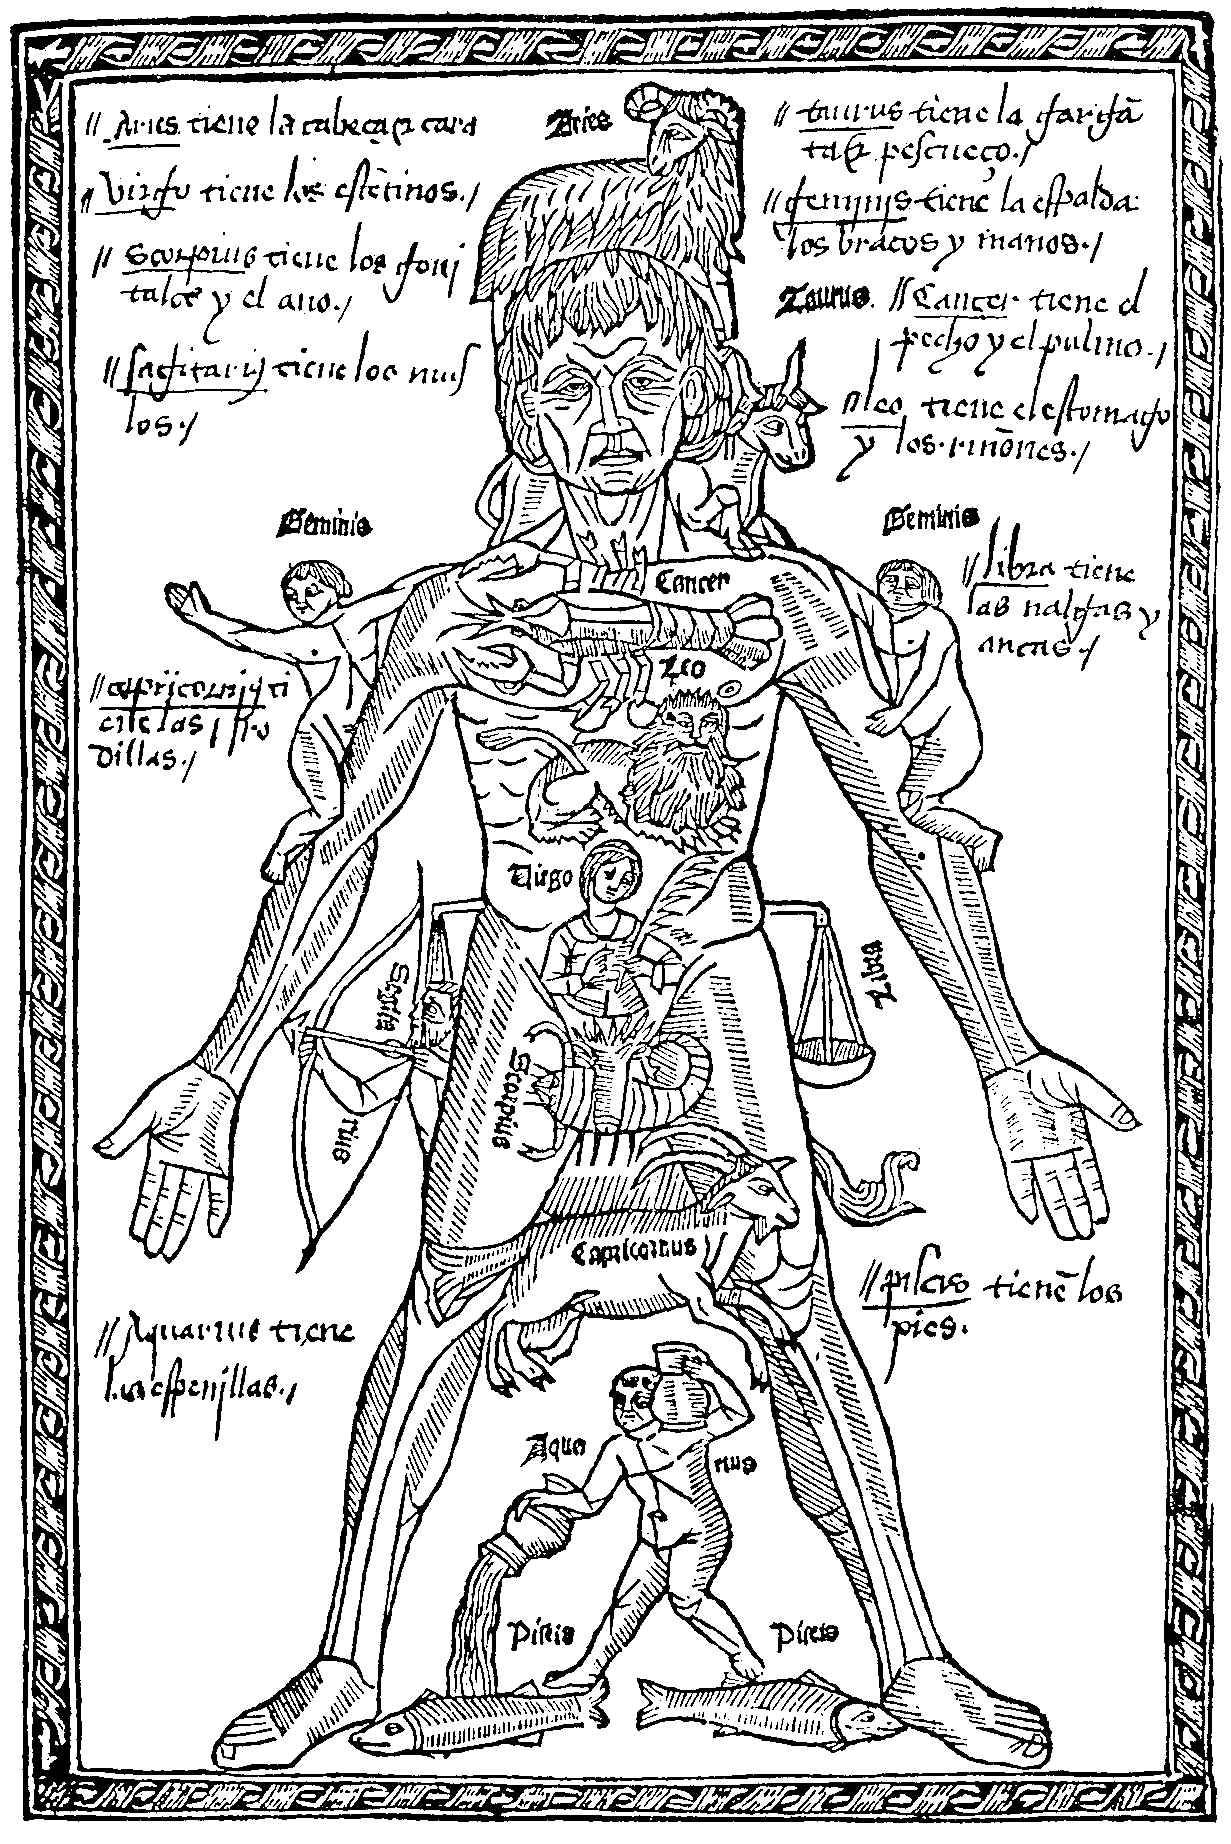 // Aries tiene la cabeça & cara
// Virgo tiene los estētinos./
// Scorpius tiene los geni
tales y el ano./
// Sagitarij tiene los mus
los./
Aries
// taurus tiene la gargā
ta & pescueço./
// geminis tiene la espalda
los braços y manos./
Taurus.
// Cancer tiene el
pecho y el pulmo./
// leo tiene el estomago
y los riñones./
Geminis
Geminis
// libra tiene
las nalgas y
ancas./
Cancer
Leo
// capricornij ti
ene las ro
dillas./
Virgo
Libra
Sagita
rius
Scorpius
Capricornus
// piscis tienē los
pies.
// Aquarius tiene
las espenillas./
Aqua
rius
Piscis
Piscis